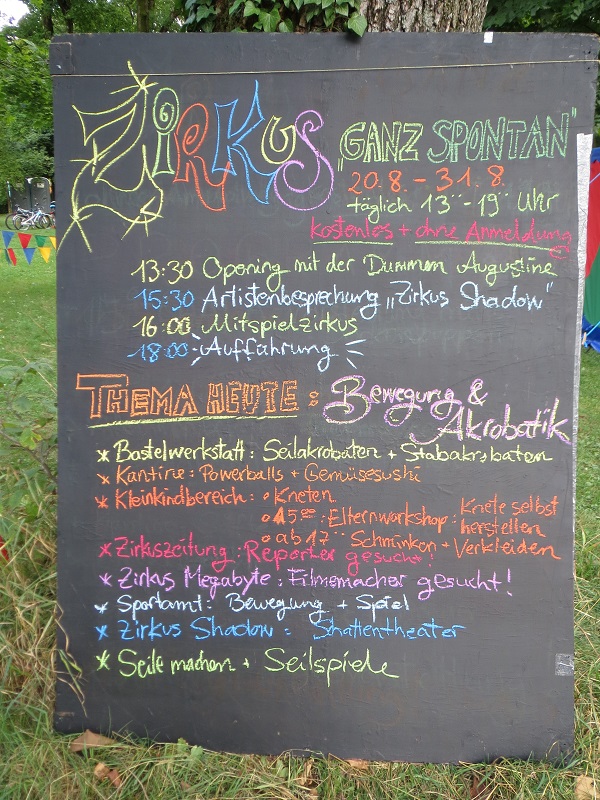 ZiRKuS „GANZ SPONTAN"
20.8. - 31.8.
täglich 13°° - 19°° Uhr
kostenlos + ohne Anmeldung
13:30 Opening mit der Dummen Augustine
15:30 Artistenbesprechung „Zirkus Shadow"
16:00 Mitspielzirkus
18:00 Aufführung
THEMA HEUTE: Bewegung &
Akrobatik
* Bastelwerkstatt: Seilakrobaten + Stabakrobaten
* Kantine: Powerballs + Gemüsesushi
* Kleinkindbereich: • Kneten
• 15°° : Elternworkshop: Knete selbst
herstellen
• ab 17°° Schminken + Verkleiden
* Zirkuszeitung: Reporter gesucht!
* Zirkus Megabyte: Filmemacher gesucht!
* Sportamt: Bewegung + Spiel
* Zirkus Shadow: Shattentheater
* Seile machen + Seilspiele